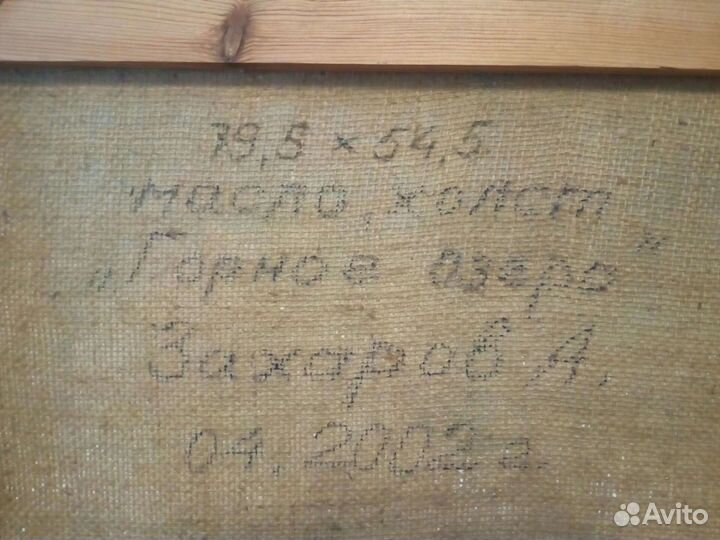 79,5 × 54,5
масло, холст
„Горное озеро"
Захаров А.
04. 2002 г.
Avito